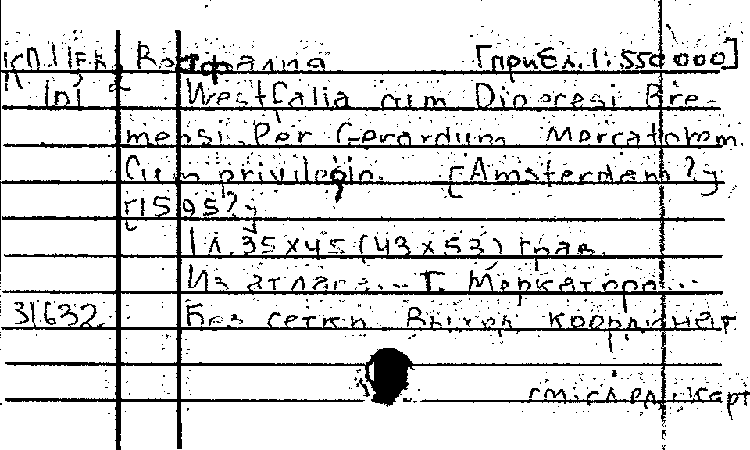 Вестфалия [Прибл. 1:550 000]
Westfalia cum Dioecesi Bre-
mensi. Per Gerardum Mercatorem.
Cum privilegio. [Amsterdam?]
[1595?]
1 л. 35 x 45 (43 x 53) грав.
Из атласа... Г. Меркатора...
31632. Без сетки. Выход. координат
см. сл. карт